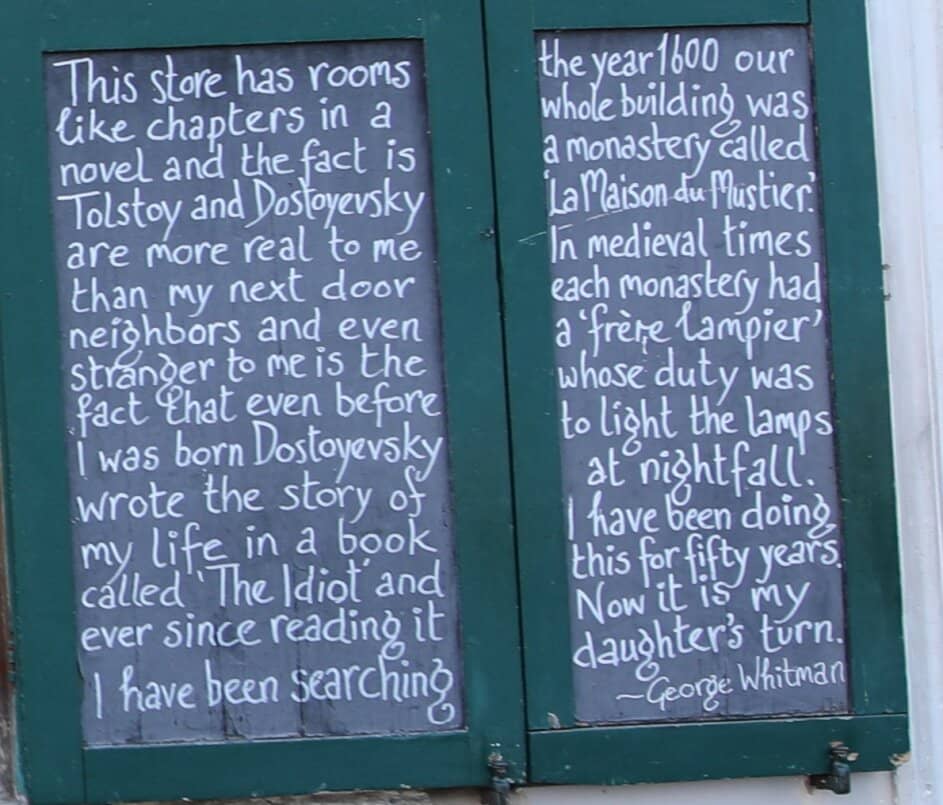 This store has rooms
like chapters in a
novel and the fact is
Tolstoy and Dostoyevsky
are more real to me
than my next door
neighbors and even
stranger to me is the
fact that even before
I was born Dostoyevsky
wrote the story of
my life in a book
called 'The Idiot' and
ever since reading it
I have been searching
the year 1600 our
whole building was
a monastery called
'La Maison du Mustier.'
In medieval times
each monastery had
a 'frère lampier'
whose duty was
to light the lamps
at nightfall.
I have been doing
this for fifty years.
Now it is my
daughter's turn.
~George Whitman